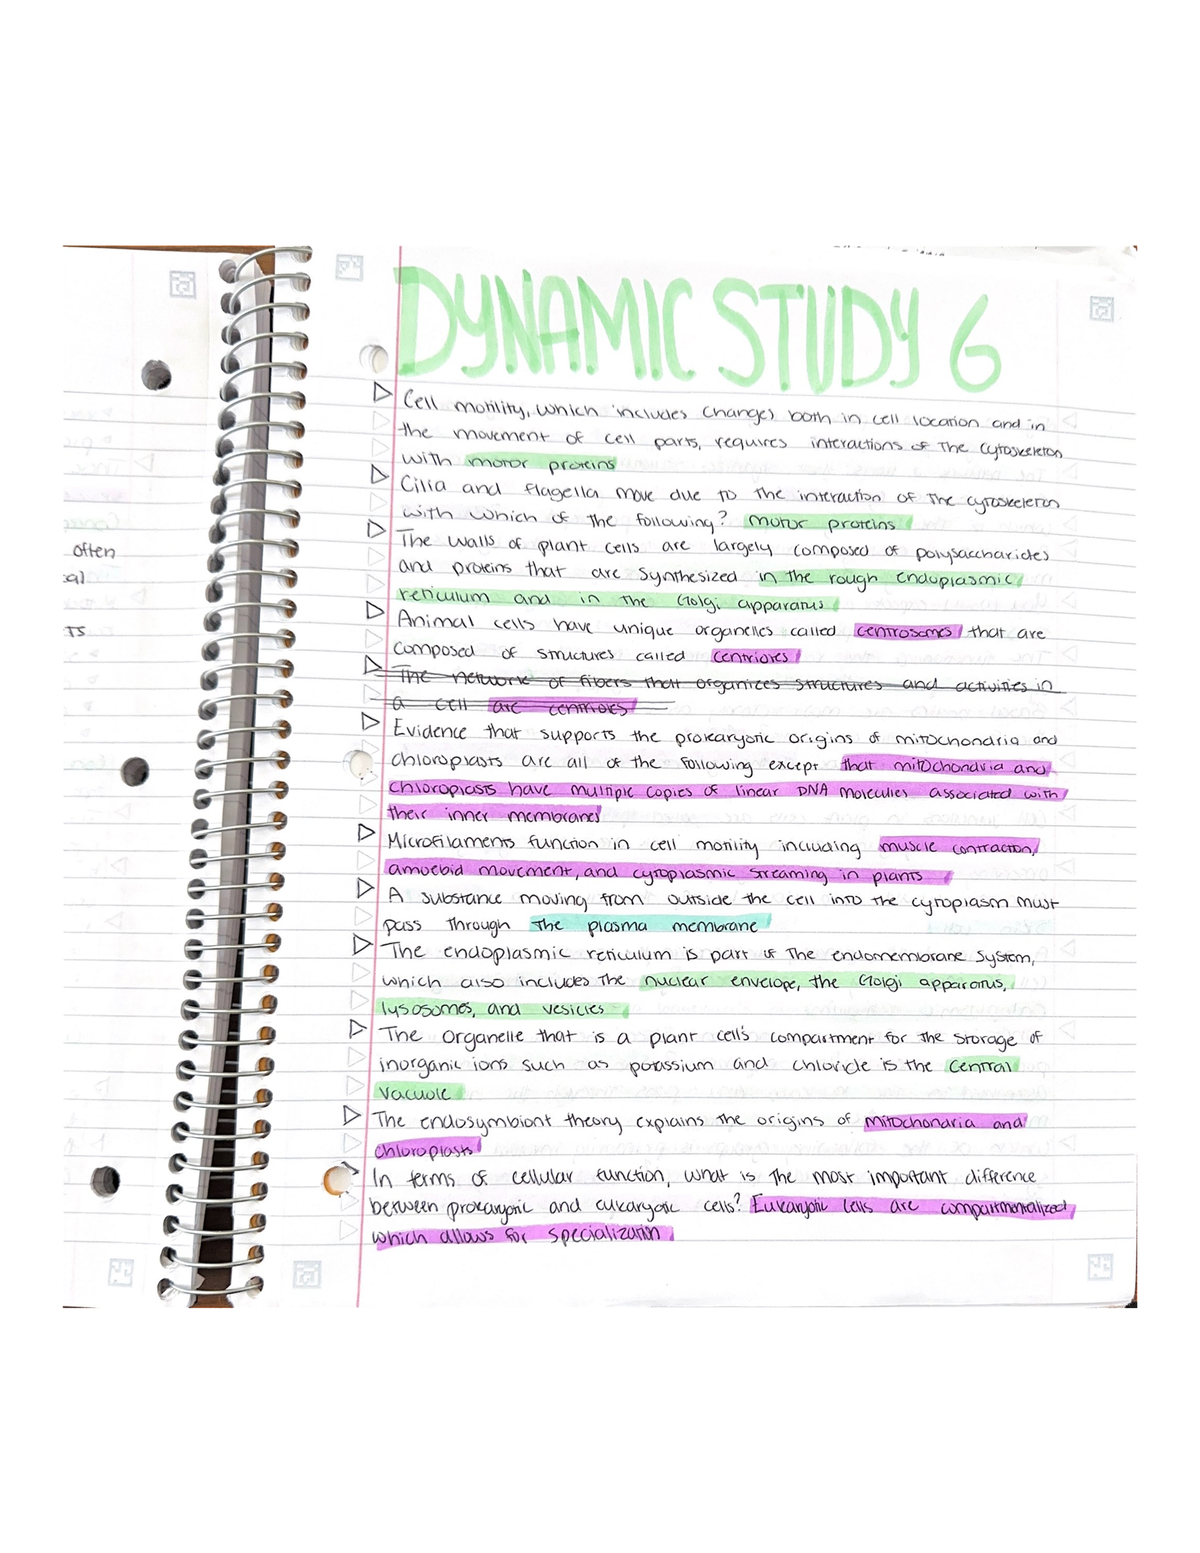 DYNAMIC STUDY 6
Cell motility, which includes changes both in cell location and in
the movement of cell parts, requires interactions of the cytoskeleton
with motor proteins
Cilia and flagella move due to the interaction of the cytoskeleton
with which of the following? motor proteins
The walls of plant cells are largely composed of polysaccharides
and proteins that are synthesized in the rough endoplasmic
reticulum and in the Golgi apparatus
Animal cells have unique organelles called centrosomes that are
composed of structures called centrioles
The network of fibers that organizes structures and activities in
a cell are centrioles
Evidence that supports the prokaryotic origins of mitochondria and
chloroplasts are all of the following except that mitochondria and
chloroplasts have multiple copies of linear DNA molecules associated with
their inner membranes
Microfilaments function in cell motility including muscle contraction,
amoebid movement, and cytoplasmic streaming in plants
A substance moving from outside the cell into the cytoplasm must
pass through the plasma membrane
The endoplasmic reticulum is part of the endomembrane system,
which also includes the nuclear envelope, the Golgi apparatus,
lysosomes, and vesicles
The organelle that is a plant cell's compartment for the storage of
inorganic ions such as potassium and chloride is the central
vacuole
The endosymbiont theory explains the origins of mitochondria and
chloroplasts
In terms of cellular function, what is the most important difference
between prokaryotic and eukaryotic cells? Eukaryotic cells are compartmentalized
which allows for specialization
often